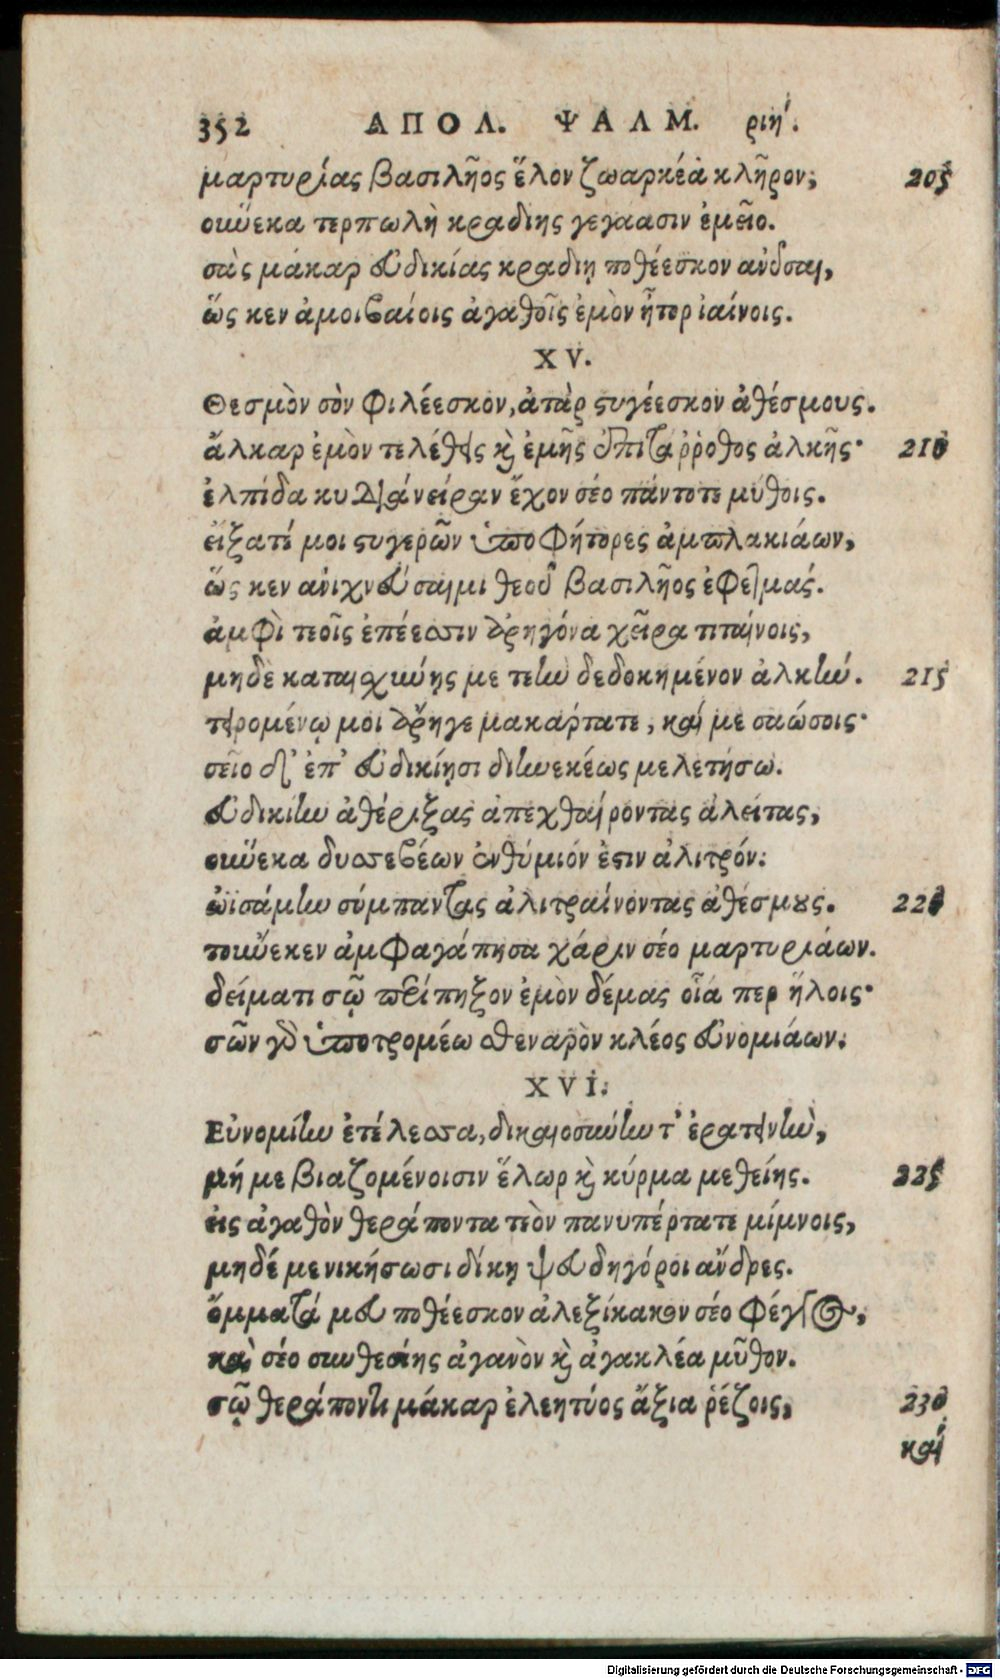 352 ΑΠΟΛ. ΨΑΛΜ. ριη΄.
μαρτυρίας βασιλῆος ἕλον ζωαρκέα κλῆρον· 205
οὕνεκα τερπωλὴ κραδίης γεγάασιν ἐμεῖο.
σὰς μάκαρ εὐδικίας κραδίῃ ποθέεσκον ἀνύσσαι,
ὥς κεν ἀμοιβαίοις ἀγαθοῖς ἐμὸν ἦτορ ἰαίνοις.
XV.
Θεσμὸν σὸν φιλέεσκον, ἀτὰρ στυγέεσκον ἀθέσμους.
ἄλκαρ ἐμὸν τελέθεις καὶ ἐμῆς ἐπιτάρροθος ἀλκῆς· 210
ἐλπίδα κυδιάνειραν ἔχον σέο πάντοτε μύθοις.
εἴξατέ μοι στυγερῶν ὑποφήτορες ἀμπλακιάων,
ὥς κεν ἀνιχνεύσαιμι θεοῦ βασιλῆος ἐφετμάς.
ἀμφὶ τεοῖς ἐπέεσσιν ἀρηγόνα χεῖρα τιταίνοις,
μηδὲ καταισχύνῃς με τεὴν δεδοκημένον ἀλκήν. 215
τειρομένῳ μοι ἄρηγε μακάρτατε, καί με σαώσοις·
σεῖο δ' ἐπ' εὐδικίῃσι διηνεκέως μελετήσω.
εὐδικίην ἀθέριξας ἀπεχθαίροντας ἀλείτας,
οὕνεκα δυσσεβέων ἐνθύμιόν ἐστιν ἀλιτρόν.
ὠϊσάμην σύμπαντας ἀλιτραίνοντας ἀθέσμους. 220
τοὔνεκεν ἀμφαγάπησα χάριν σέο μαρτυριάων.
δείματι σῷ περίπηξον ἐμὸν δέμας οἷά περ ἥλοις·
σῶν γὰρ ὑποτρομέω σθεναρὸν κλέος εὐνομιάων.
XVI.
Εὐνομίην ἐτέλεσσα, δικαιοσύνην τ' ἐρατεινὴν,
μή με βιαζομένοισιν ἕλωρ καὶ κύρμα μεθείης. 225
εἰς ἀγαθὸν θεράποντα τεὸν πανυπέρτατε μίμνοις,
μηδέ με νικήσωσι δίκῃ ψευδηγόροι ἄνδρες.
ὄμματά μευ ποθέεσκον ἀλεξίκακον σέο φέγγος,
καὶ σέο συνθεσίης ἀγανὸν καὶ ἀγακλέα μῦθον.
σῷ θεράποντι μάκαρ ἐλεητύος ἄξια ῥέζοις, 230
καί
Digitalisierung gefördert durch die Deutsche Forschungsgemeinschaft - DFG